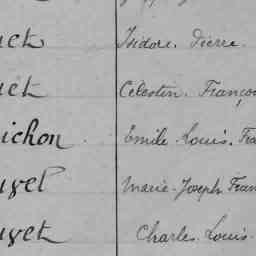 uet Isidore. Pierre.
uet Célestin. Franço
ichon. Emile. Louis. Fra
uvet Marie. Joseph Fran
uvet Charles. Louis.